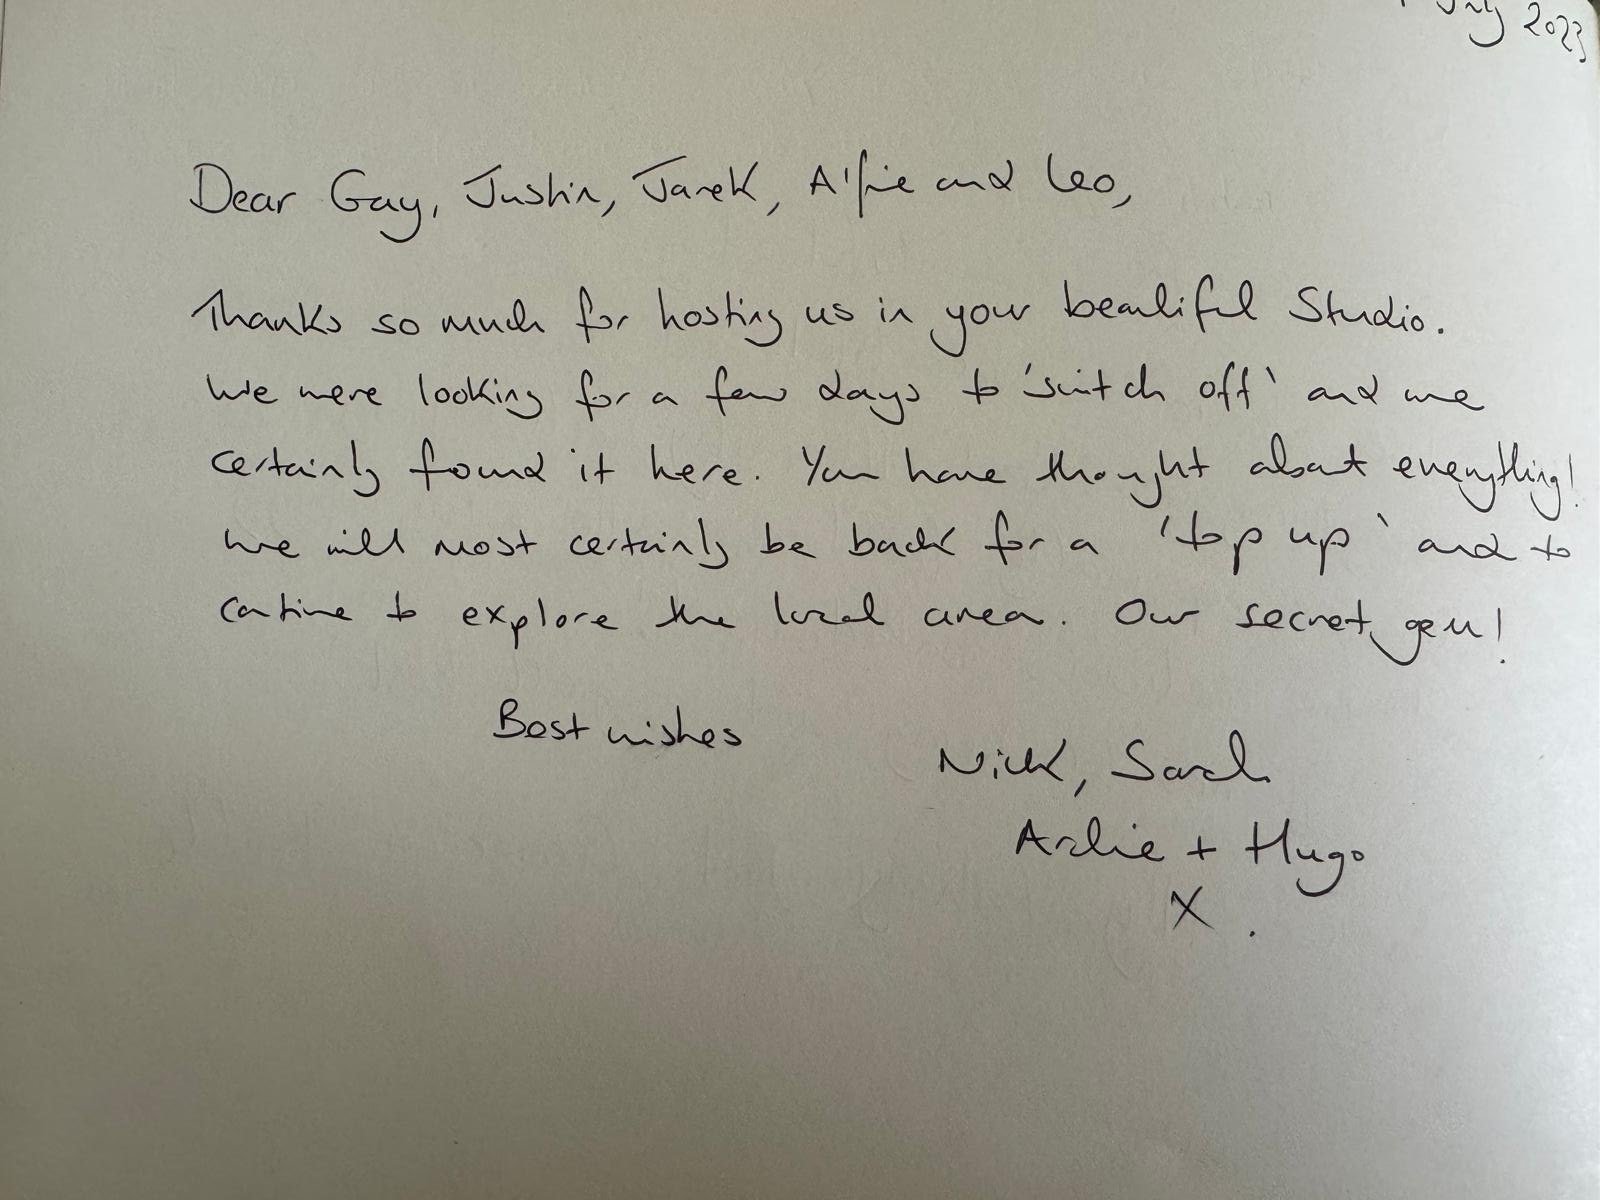 July 2023
Dear Gay, Justin, Jarek, Alfie and Leo,
Thanks so much for hosting us in your beautiful Studio.
We were looking for a few days to 'switch off' and we
certainly found it here. You have thought about everything!
We will most certainly be back for a 'top up' and to
continue to explore the local area. Our secret gem!
Best wishes
Nick, Sarah
+ Hugo
X.